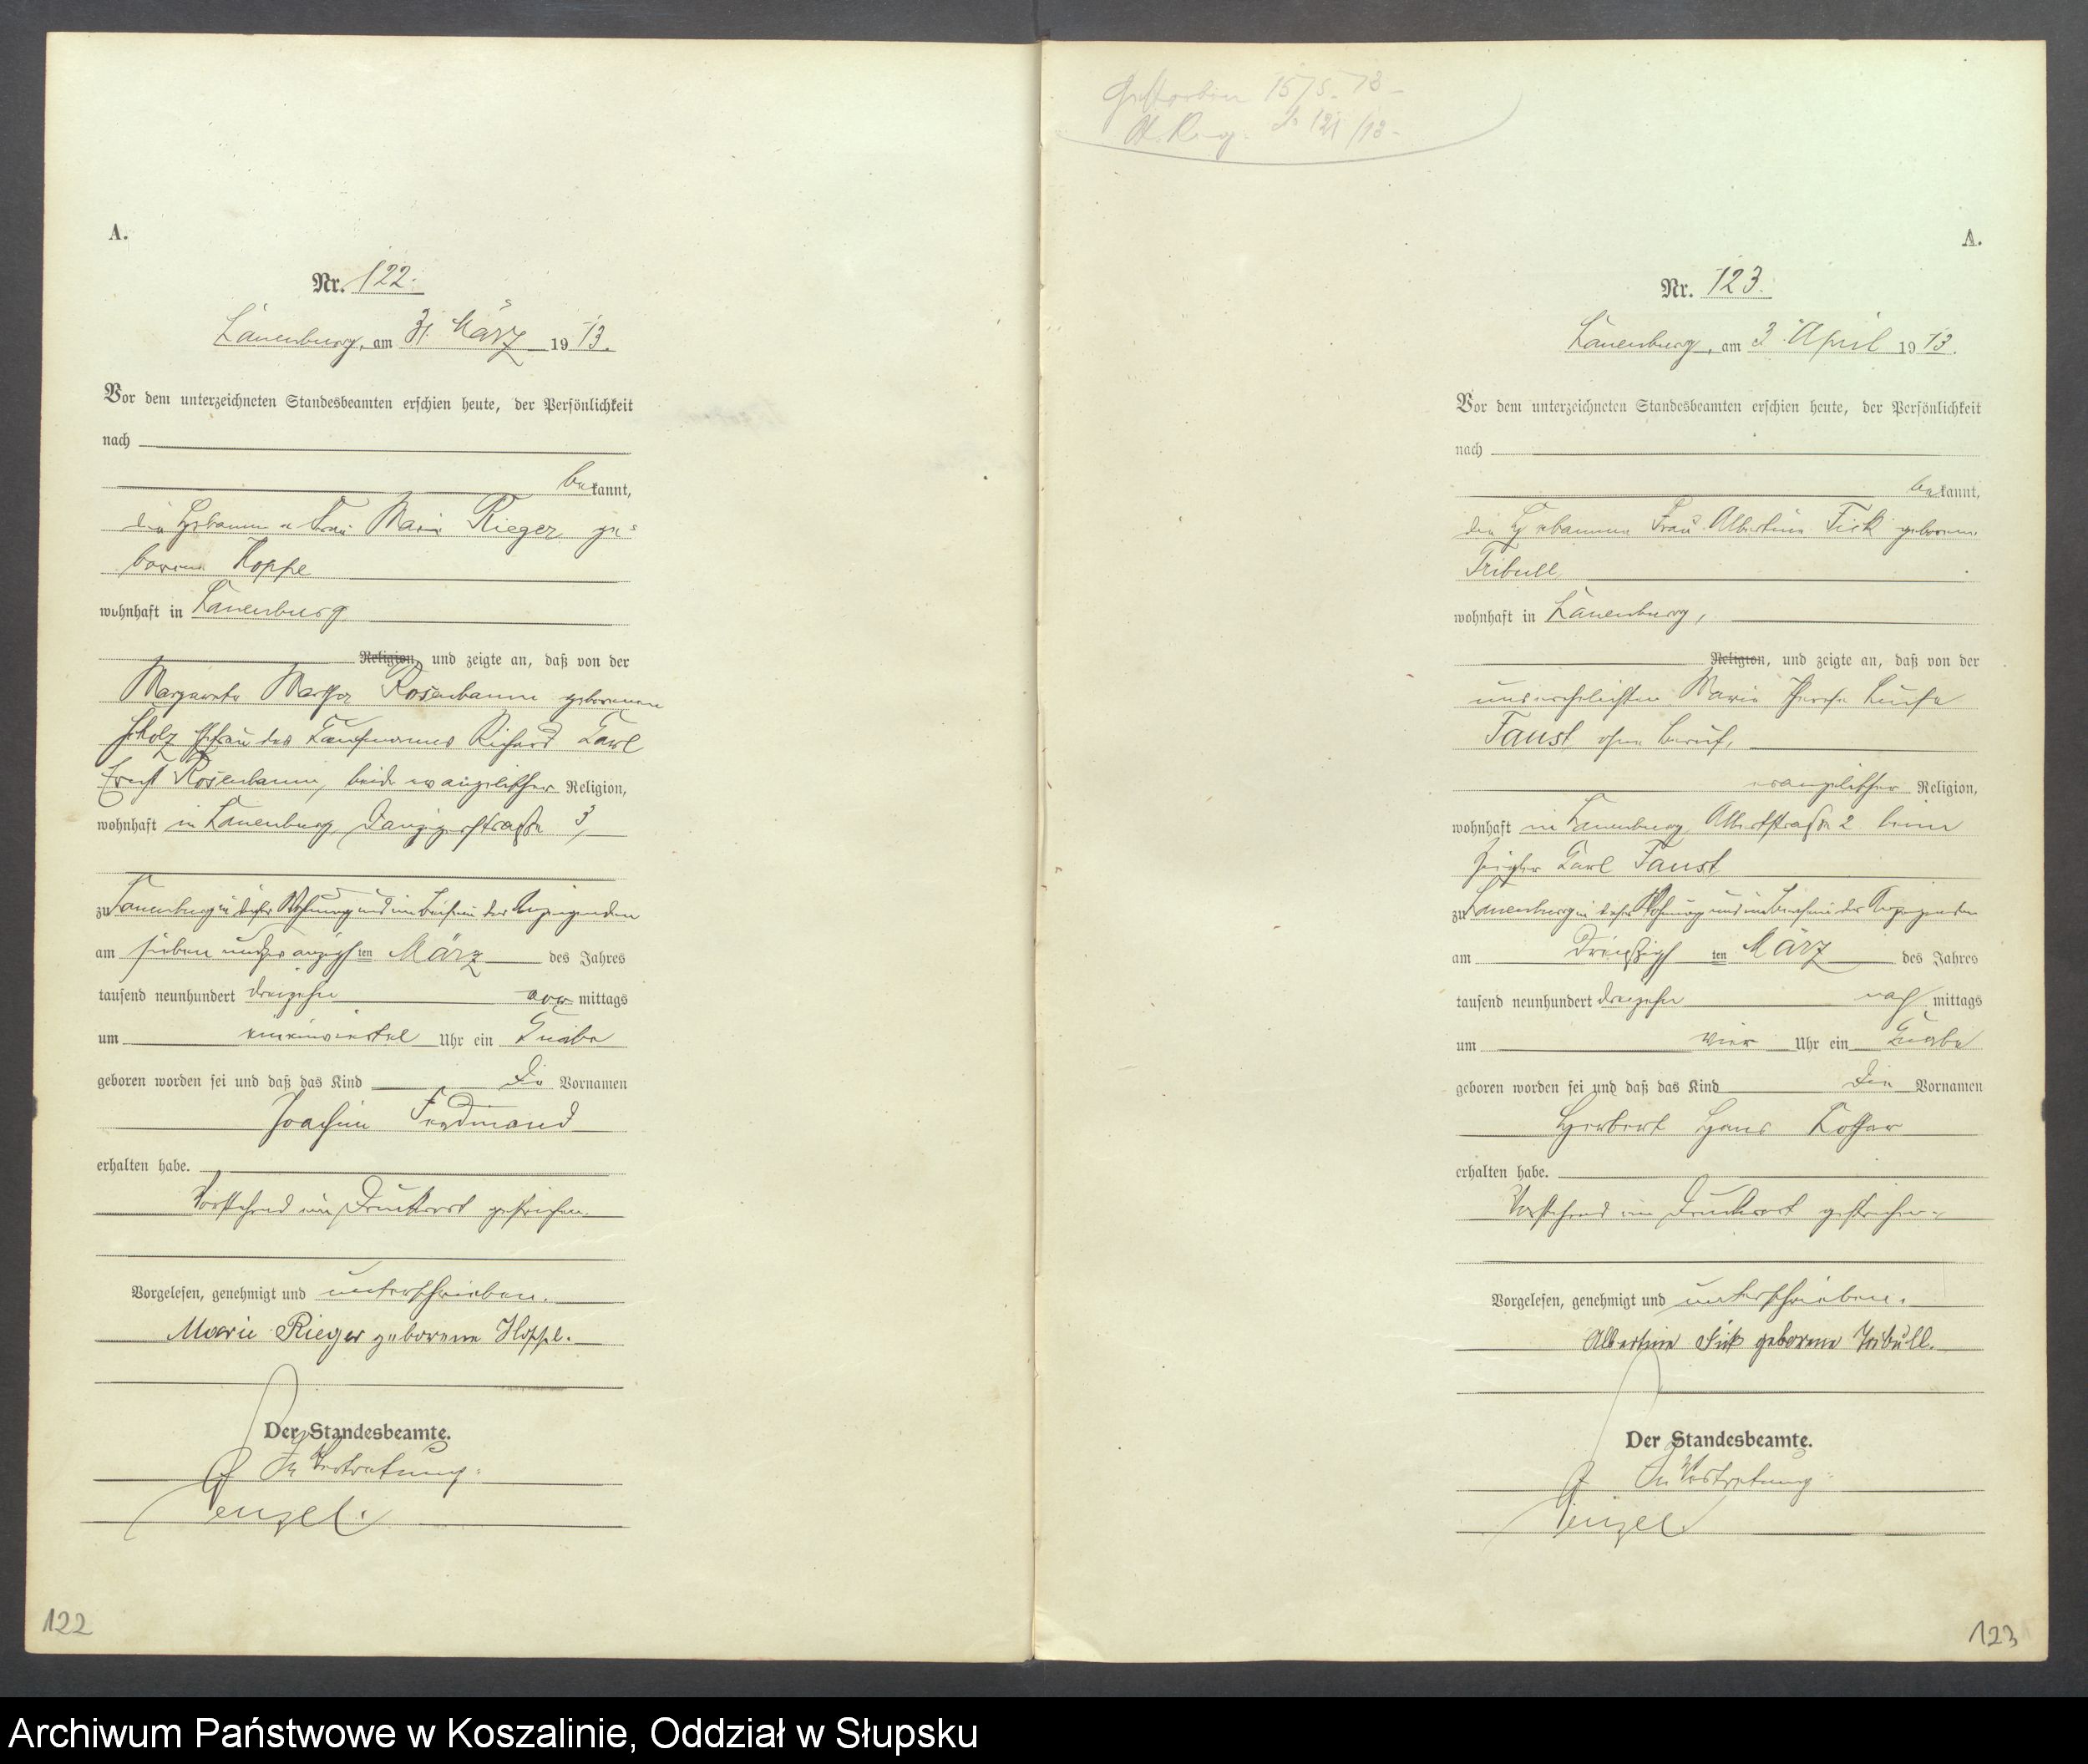 A.
Nr. 122.
Lauenburg, am 31. März 1913.
Vor dem unterzeichneten Standesbeamten erschien heute, der Persönlichkeit
nach
bekannt,
die Hebamme Frau Marie Rieger ge=
borene Hoppe
wohnhaft in Lauenburg
Religion, und zeigte an, daß von der
Margarete Martha Rosenbaum geborenen
Scholz Ehefrau des Kaufmannes Richard Karl
Ernst Rosenbaum, beide evangelischer Religion,
wohnhaft in Lauenburg Danzigerstraße 3,
zu Lauenburg in dieser Wohnung und im Beisein der Anzeigenden
am sieben und zwanzigsten März des Jahres
tausend neunhundert dreizehn vor mittags
um Uhr ein Knabe
geboren worden sei und daß das Kind die Vornamen
Joachim Ferdinand
erhalten habe.
Vorstehend ein Druckwort gestrichen.
Vorgelesen, genehmigt und unterschrieben.
Marie Rieger geborene Hoppe.
Der Standesbeamte.
In Vertretung:
122
Gestorben 15/5. 13 -
St. Reg. № 121/13 -
A.
Nr. 123.
Lauenburg, am 3. April 1913.
Vor dem unterzeichneten Standesbeamten erschien heute, der Persönlichkeit
nach
bekannt,
die Hebamme Frau Albertine Fick geborene
Tribull,
wohnhaft in Lauenburg,
Religion, und zeigte an, daß von der
unverehelichten Marie Luise
Faust ohne Beruf,
evangelischer Religion,
wohnhaft in Lauenburg Albertstraße 2 beim
Karl Faust
zu Lauenburg in dieser Wohnung und im Beisein der Anzeigenden
am dreißigsten März des Jahres
tausend neunhundert dreizehn nach mittags
um vier Uhr ein Knabe
geboren worden sei und daß das Kind die Vornamen
Herbert Hans Lothar
erhalten habe.
Vorstehend ein Druckwort gestrichen.
Vorgelesen, genehmigt und unterschrieben.
Albertine Fick geborene Tribull.
Der Standesbeamte.
In Vertretung:
123
Archiwum Państwowe w Koszalinie, Oddział w Słupsku